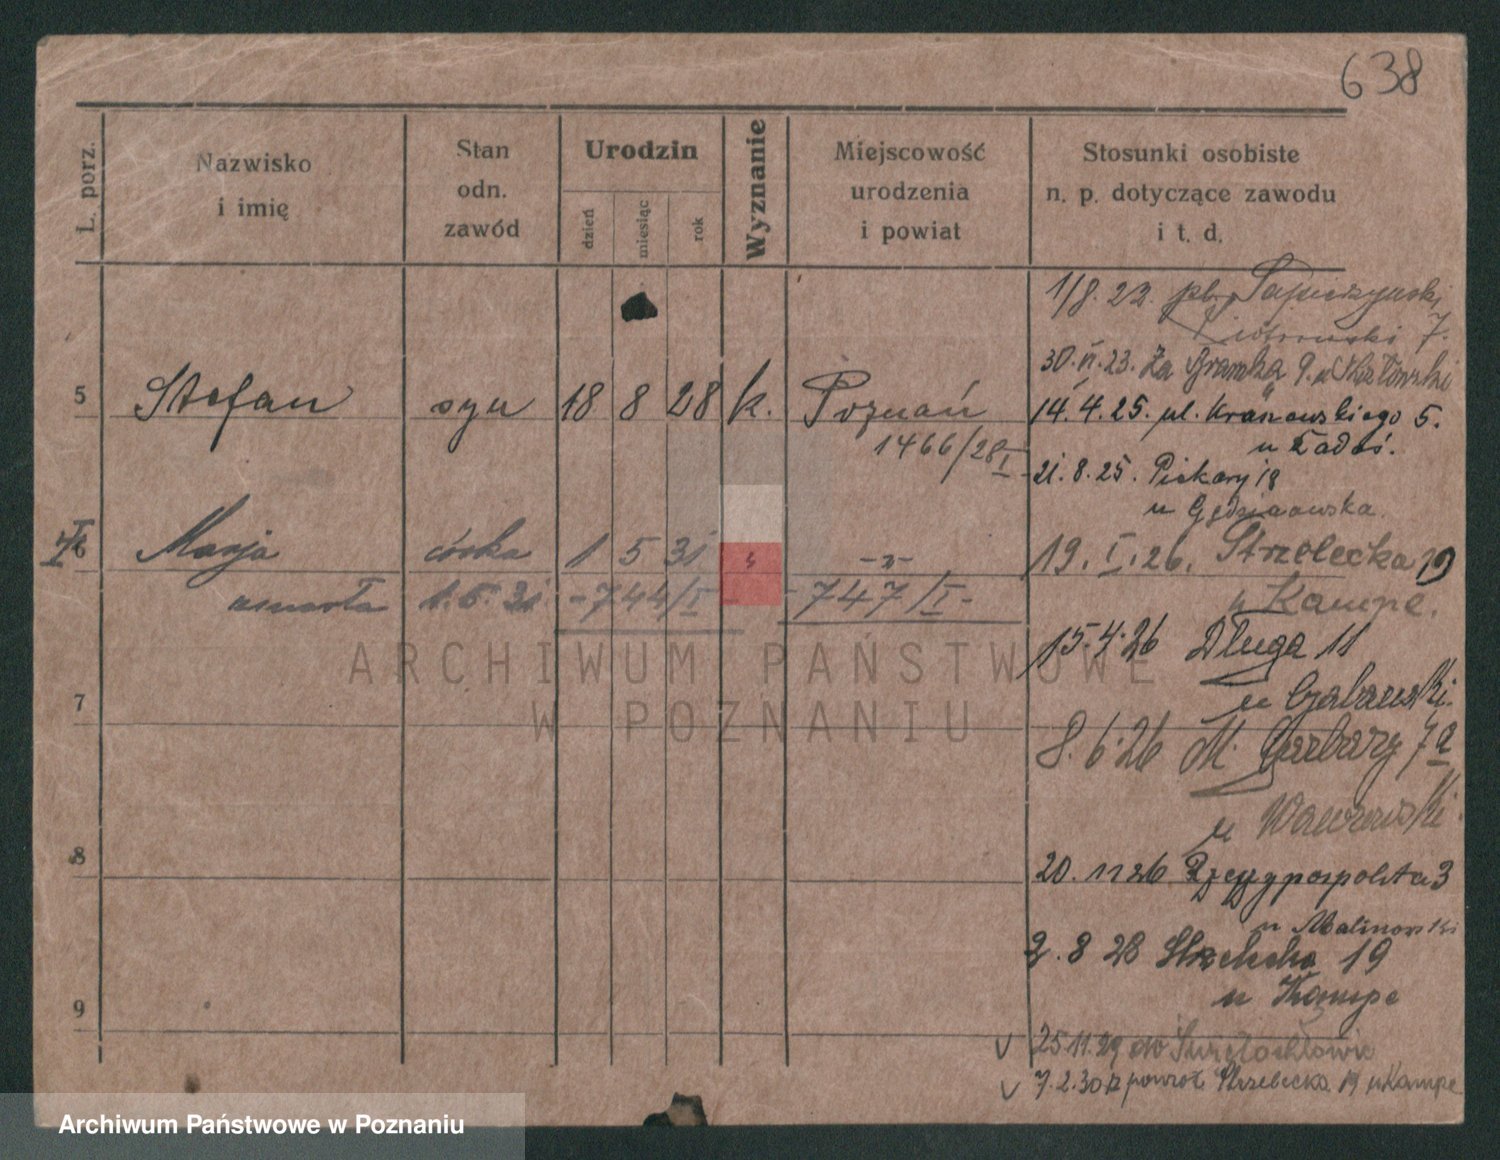 638
L. porz.
Nazwisko
i imię
Stan
odn.
zawód
Urodzin
dzień
miesiąc
rok
Wyznanie
Miejscowość
urodzenia
i powiat
Stosunki osobiste
n. p. dotyczące zawodu
i t. d.
1/8. 22.
30. VI. 23. Za Bramką 9.
5 Stefan syn 18 8 28 k. Poznań
1466/28 I
14. 4. 25. ul. Kraszewskiego 5.
u Ładoś.
21. 8. 25. Piekary 18
u
6 Marja córka 1 5 31 -"-
zmarła 1. 5. 31 -744/I- -747/I-
19. I. 26. Strzelecka 19
u Kampe.
15. 4. 26 Długa 11
u
7
8. 6. 26 M. Garbary 7a
u Wawrowski.
8
20. 11 26 Rzeczypospolita 3
u Malinowski
2. 8 28 Strzelecka 19
u Kampe
9
25.11.29 do
7.2.30 z powrot Strzelecka 19 u Kampe
ARCHIWUM PAŃSTWOWE
W POZNANIU
Archiwum Państwowe w Poznaniu